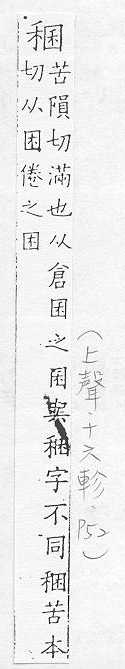 稛
苦隕切滿也从倉囷之囷與稇字不同稇苦本
切从困倦之困
（上聲·十六軫·P52）